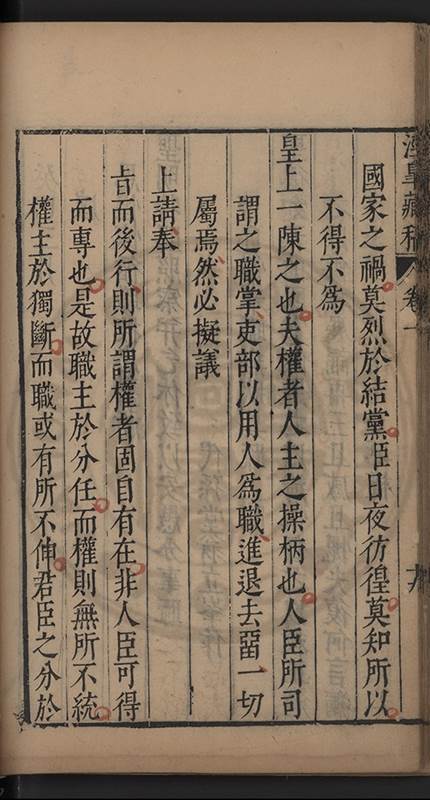 涇皐藏稿 卷一
國家之禍莫烈於結黨臣日夜彷徨莫知所以
不得不爲
皇上一陳之也夫權者人主之操柄也人臣所司
謂之職掌吏部以用人爲職進退去畱一切
屬焉然必擬議
上請奉
旨而後行則所謂權者固自有在非人臣可得
而專也是故職主於分任而權則無所不統
權主於獨斷而職或有所不伸君臣之分於